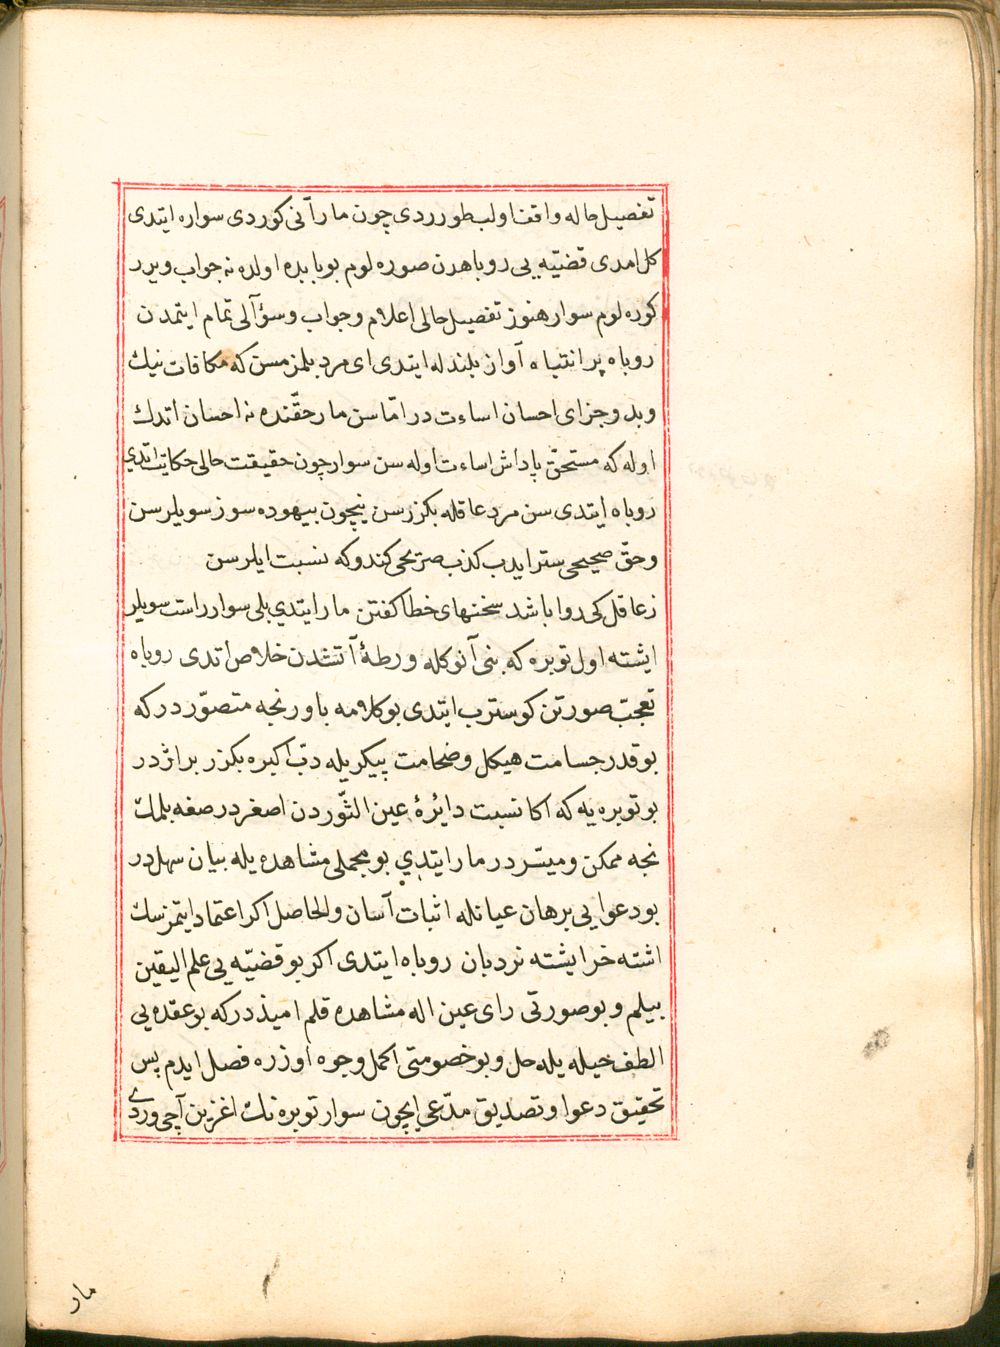 تفصیل حاله واقف اولب طوررد‌ی چون مار آنی کوردی سواره ایتدی
کل امدی قضیّه یی روباهدن صوره لوم بو بابده اولده نه جواب ویرر
کوره لوم سوار هنوز تفصیل حالی اعلام وجواب وسؤآلی تمام ایتمدن
روباه پر انتباه آواز بلندله ایتدی ای مرد بلمز مسن که مکافات نیك
وبد وجزای احسان اساءت در امّا سن مار حقّنده نه احسان اتدك
اوله که مستحقّ پاداش اساءت اوله سن سوار چون حقیقت حالی حکایت اتدی
روباه ایتدی سن مرد عاقله بکزرسن نیچون بیهوده سوز سویلرسن
وحقّ صحیحی ستر ایدب کذب صریحی کندوکه نسبت ایلرسن
زعاقل کی روا باشد سخنهای خطا کفتن مار ایتدی بلی سوار راست سویلر
ایشته اول توبره که بنی آنوکله ورطهٔ آتشدن خلاص اتدی روباه
تعجّب صورتن کوسترب ایتدی بو کلامه باور نجه متصوّر در که
بو قدر جسامت هیکل وضخامت پیکریله دبّ اکبره بکزر بر اژدر
بو توبره یه که اکا نسبت دایرهٔ عین الثّوردن اصغردر صغه بلمك
نجه ممکن ومیسّر در مار ایتدی بو مجملی مشاهده یله بیان سهل در
بو دعوایی برهان عیانله اثبات آسان والحاصل اکر اعتماد ایتمزسك
اشته خر ایشته نردبان روباه ایتدی اکر بو قضیّه یی علم الیقین
بیلم وبو صورتی رای عین اله مشاهده قلم امیذدر که بو عقده یی
الطف حیله یله حل وبو خصومتی اکمل وجوه اوزره فصل ایدم پس
تحقیق دعوا وتصدیق مدّعی ایچون سوار توبره نك اغزین آچی وردی
مار